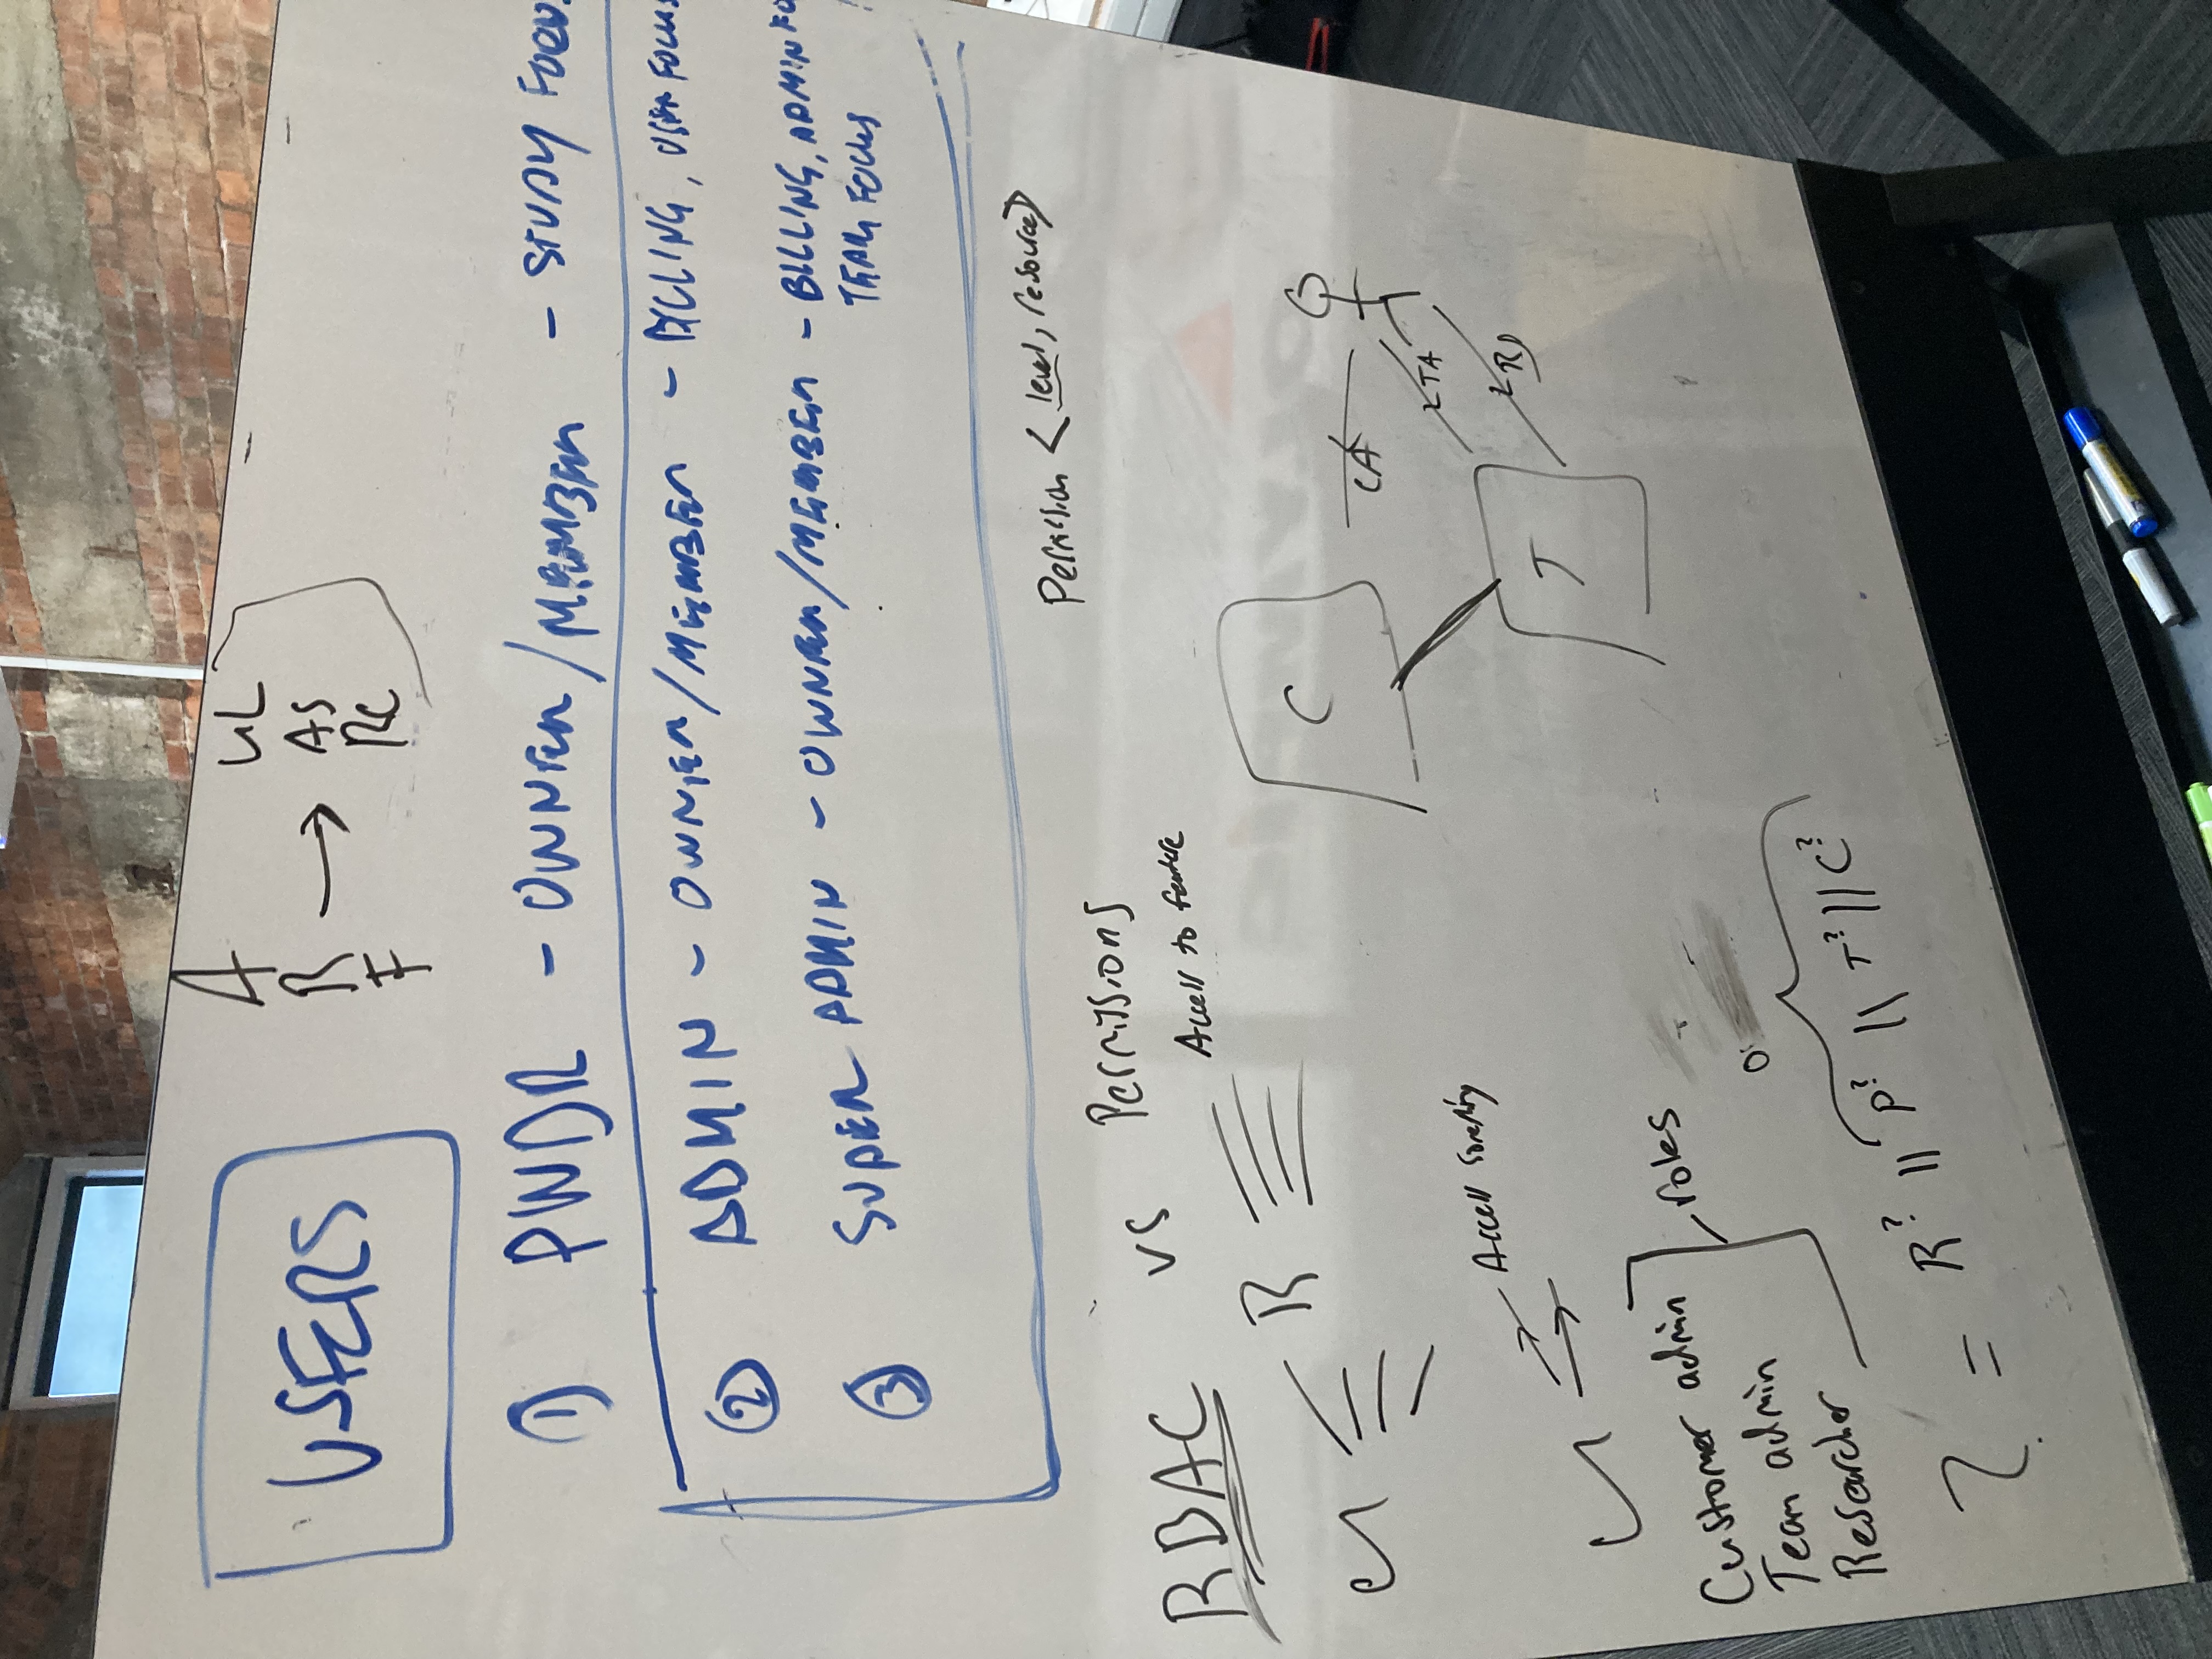 USERS
A
R → AS
F RC
UL
① PWDR - OWNER/MEMBER - STUDY FOCUS
② ADMIN - OWNER/MEMBER - BILLING, USER FOCUS
③ SUPER ADMIN - OWNER/MEMBER - BILLING, ADMIN FO
TEAM FOCUS
RBAC vs Permissions
Permission < level, resource>
Access to feature
U R
C
CA
TA
R
T
Access
U
Customer admin
Team admin
Researcher
roles
= R? || P? || T? || C?